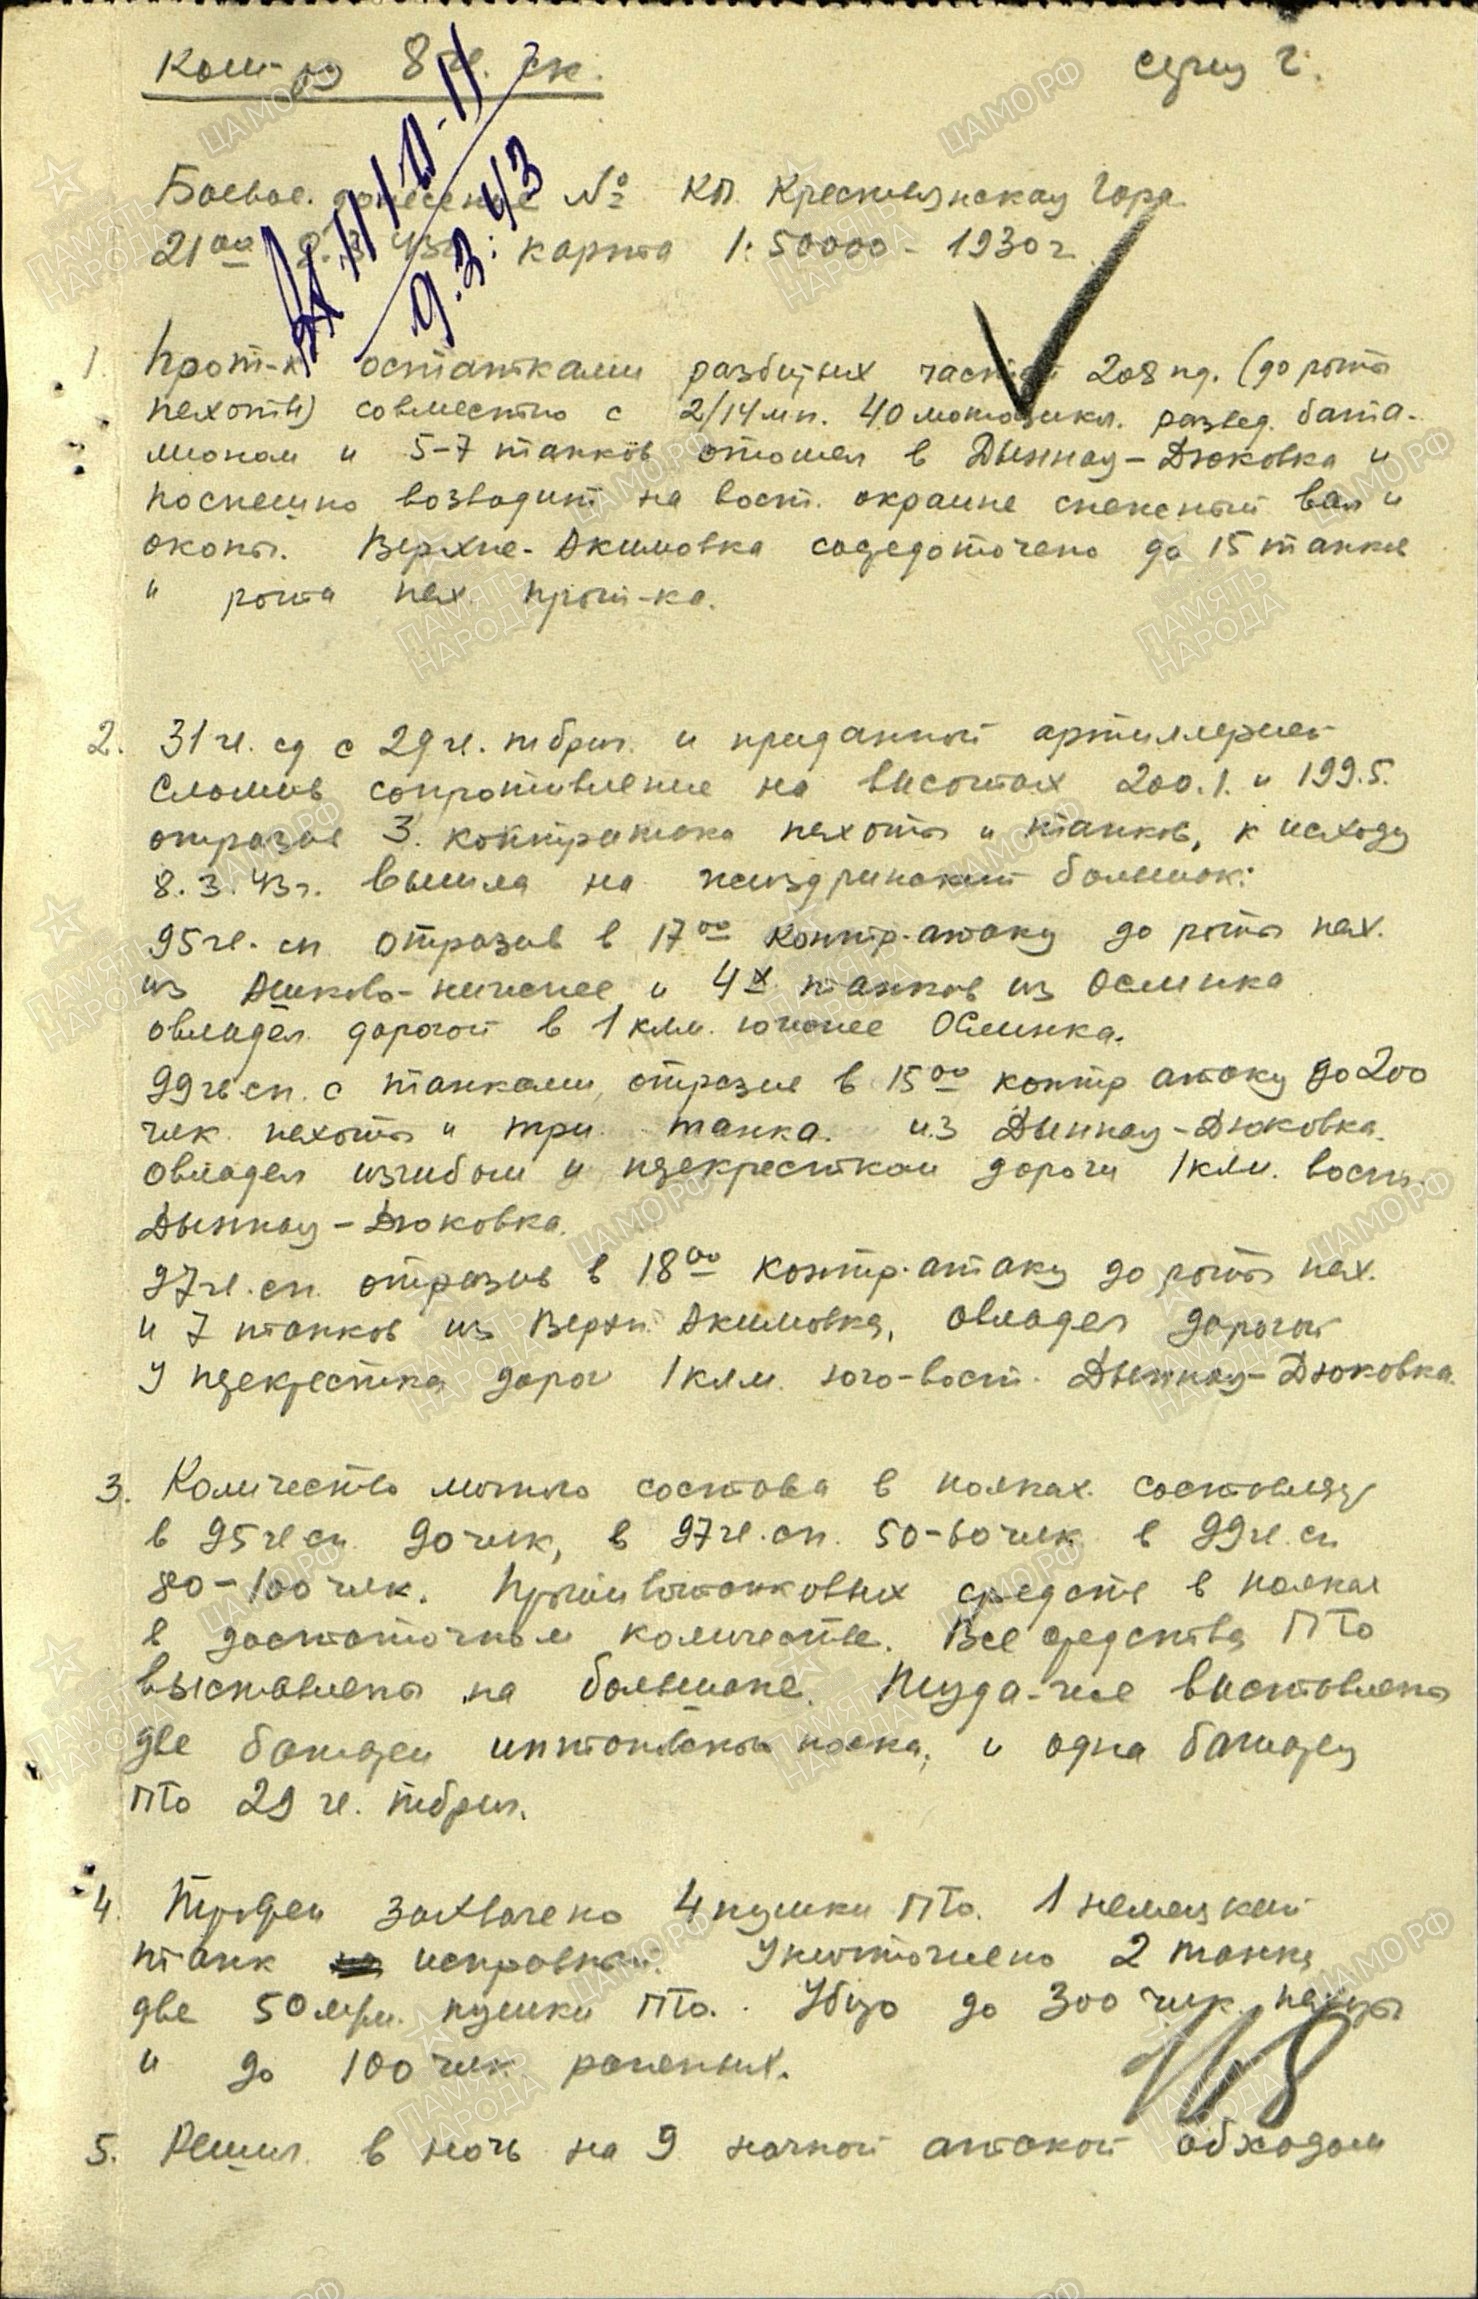 Ком-ру 8 гв. ск. серия г.
Вх. № 9.3.43
Боевое донесение № КП Крестьянская Гора
21⁰⁰ 8.3.43г. карта 1:50000 - 1930г.
1. Прот-к остатками разбитых частей 208 пд. (до роты
пехоты) совместно с 2/14 мп. 40 мотоцикл. развед. бата-
лионом и 5-7 танков отошел в Дынная-Дюковка и
поспешно возводит на вост. окраине снежный вал и
окопы. Верхне-Акимовка сосредоточено до 15 танков
и рота пех. прот-ка.
2. 31 гв. сд с 29 гв. тбриг. и приданной артиллерией
сломив сопротивление на высотах 200.1. и 199.5.
отразив 3 контратаки пехоты и танков, к исходу
8.3.43г. вышла на жиздринский большак:
95 гв. сп отразив в 17⁰⁰ контр-атаку до роты пех.
из Ашково-нижнее и 4х танков из Ослинка
овладел дорогой в 1 клм. южнее Ослинка.
99 гв. сп. с танками, отразив в 15⁰⁰ контр атаку до 200
чел. пехоты и три танка из Дынная-Дюковка.
овладел изгибом и перекрестком дороги 1 клм. вост.
Дынная-Дюковка.
97 гв. сп. отразив в 18⁰⁰ контр-атаку до роты пех.
и 7 танков из Верхн. Акимовка, овладел дорогой
у перекрестка дорог 1 клм. юго-вост. Дынная-Дюковка.
3. Количество личного состава в полках составляет
в 95 гв сп 90 чел, в 97 гв. сп. 50-60 чел в 99 гв. сп
80-100 чел. Противотанковых средств в полках
в достаточном количестве. Все средства ПТО
выставлены на большаке. Туда-же выставлены
две батареи иптап полка, и одна батарея
ПТО 29 гв. тбриг.
4. Трофеи захвачено 4 пушки ПТО. 1 немецкий
танк исправный. Уничтожено 2 танка
две 50 м/м. пушки ПТО. Убито до 300 чел. пехоты
и до 100 чел. раненых.
5. Решил в ночь на 9 ночной атакой обходом